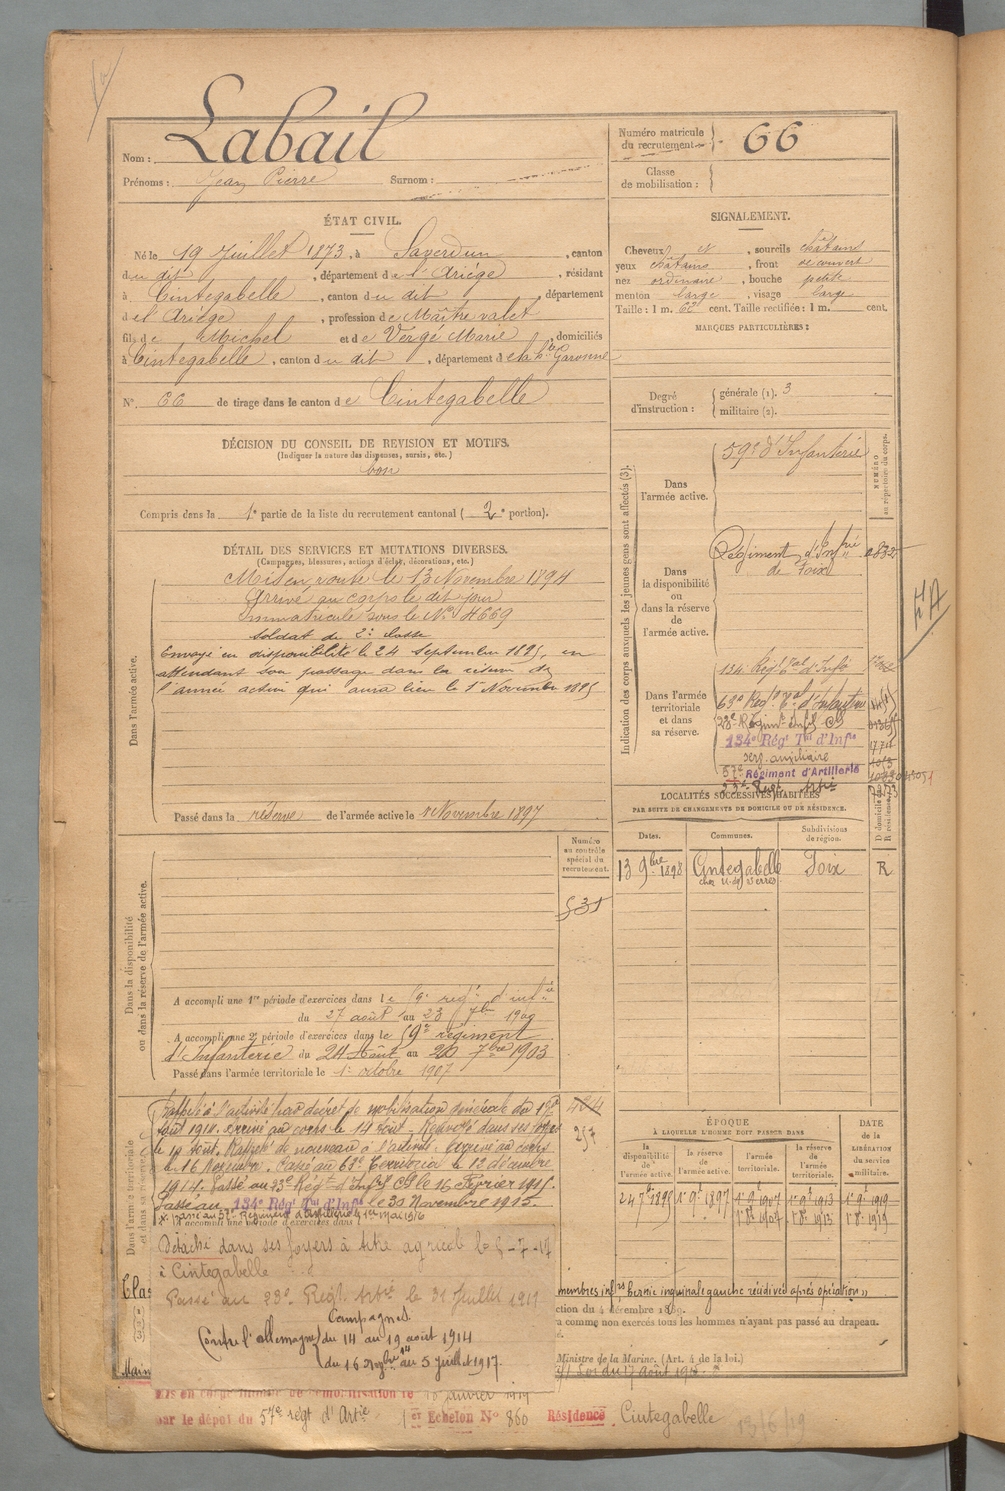 Nom : Labail
Prénoms : Jean Pierre Surnom :
Numéro matricule du recrutement 66
Classe de mobilisation :
ÉTAT CIVIL.
Né le 19 Juillet 1873, à Saverdun, canton
du dit, département de l'Ariége, résidant
à Cintegabelle, canton du dit département
d el Ariége, profession de Maître valet
fils de Michel et de Vergé Marie, domiciliés
à Cintegabelle, canton du dit, département de la hte Garonne
N° 66 de tirage dans le canton de Cintegabelle
SIGNALEMENT.
Cheveux N, sourcils châtains
yeux châtains, front recouvert
nez ordinaire, bouche petite
menton large, visage large
Taille : 1 m. 62 cent. Taille rectifiée : 1 m. cent.
MARQUES PARTICULIÈRES :
Degré d'instruction : générale (1). 3
militaire (2).
DÉCISION DU CONSEIL DE REVISION ET MOTIFS.
(Indiquer la nature des dispenses, sursis, etc.)
bon
Compris dans la 1e partie de la liste du recrutement cantonal (2e portion).
DÉTAIL DES SERVICES ET MUTATIONS DIVERSES.
(Campagnes, blessures, actions d'éclat, décorations, etc.)
Dans l'armée active.
Mis en route le 13 Novembre 1894
Arrivé au corps le dit jour
Immatriculé sous le N° 4669
soldat de 2e classe
Envoyé en disponibilité le 24 Septembre 1895, en
attendant son passage dans la réserve de
l'armée active qui aura lieu le 1r Novembre 1895
Passé dans la réserve de l'armée active le 1r Novembre 1897
Indication des corps auxquels les jeunes gens sont affectés (3).
NUMÉRO au répertoire du corps.
Dans l'armée active.
59e d'Infanterie
Dans la disponibilité ou dans la réserve de l'armée active.
Régiment d'Infrie
de Foix
Dans l'armée territoriale et dans sa réserve.
134 Régt tal d'Infie
63e Regt tal d'Infanterie
134e Régt Tal d'Infie
serv. auxiliaire
57e Régiment d'Artillerie
LOCALITÉS SUCCESSIVES HABITÉES
PAR SUITE DE CHANGEMENTS DE DOMICILE OU DE RÉSIDENCE.
Dates. Communes. Subdivisions de région. D domicile R résidence
13 9bre 1898 Cintegabelle Foix R
Dans la disponibilité ou dans la réserve de l'armée active.
Numéro au contrôle spécial du recrutement.
A accompli une 1re période d'exercices dans le
du 27 août au 23 7bre 1900
A accompli une 2e période d'exercices dans le 59e régiment
d'Infanterie du 24 Août au 20 7bre 1903
Passé dans l'armée territoriale le 1r octobre 1907
Dans l'armée territoriale et dans sa réserve
Rappelé à l'activité par décret de mobilisation générale du 1er
août 1914. Arrivé au corps le 14 août. Renvoyé dans ses foyers
le 19 août. Rappelé de nouveau à l'activité. Arrivé au corps
le 16 Novembre. Passé au 63e Territorial le 12 décembre
1914. Passé au 23e Régt d'Infie CS le 16 Février 1915.
Passé au 134e Régt Tal d'Infie le 30 Novembre 1915.
passé au 57e Régiment d'artillerie le 1er mai 1916
A accompli une période d'exercices dans l
Détaché dans ses foyers à titre agricole le 5-7-17
à Cintegabelle
Passé au 23e Régt Artie le 31 Juillet 1917
Campagnes.
Contre l'allemagne du 14 au 19 août 1914
du 16 novbre 14 au 5 Juillet 1917.
ÉPOQUE
À LAQUELLE L'HOMME DOIT PASSER DANS
la disponibilité de l'armée active.
la réserve de l'armée active.
l'armée territoriale.
la réserve de l'armée territoriale.
DATE de la LIBÉRATION du service militaire.
24 7bre 1895 1r 9e 1897 1r 9e 1907 1r 9e 1913 1r 9e 1919
1r 8e 1907 1r 8e 1913 1r 8e 1919
membres infrs hernie inguinale gauche récidivée après opération
comme non exercés tous les hommes n'ayant pas passé au drapeau.
Ministre de la Marine. (Art. 4 de la loi.)
Loi du 17 août 1915
par le dépôt du 57e regt d'Artie 1er Echelon N° 860 Résidence Cintegabelle
13/6/19